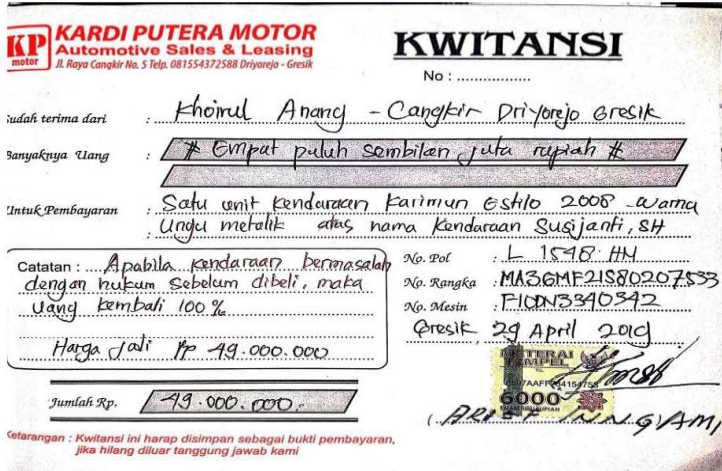 KP motor
KARDI PUTERA MOTOR
Automotive Sales & Leasing
Jl. Raya Cangkir No. 5 Telp. 081554372588 Driyorejo - Gresik
KWITANSI
No : .................
Sudah terima dari : Khoirul Anang - Cangkir Driyorejo Gresik
Banyaknya Uang : # Empat puluh sembilan juta rupiah #
Untuk Pembayaran : Satu unit kendaraan Karimun Estilo 2008 - warna
: Ungu metalik atas nama kendaraan Susijanti, SH
Catatan : Apabila kendaraan bermasalah
dengan hukum sebelum dibeli, maka
uang kembali 100 %
Harga Jadi Rp 49.000.000
No. Pol : L 1548 HM
No. Rangka : MA3GMF21S80207533
No. Mesin : F10DN3340342
Gresik, 29 April 2019
METERAI
TEMPEL
6000
ENAM RIBU RUPIAH
Jumlah Rp. 49.000.000,-
Keterangan : Kwitansi ini harap disimpan sebagai bukti pembayaran,
jika hilang diluar tanggung jawab kami